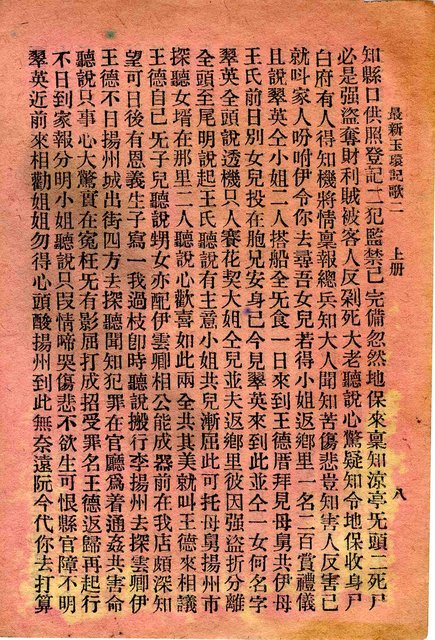 最新玉環記歌二　上册
八
知縣口供照登記二犯監禁已完備忽然地保來稟知涼亭旡頭二死尸
必是强盜奪財利賊被客人反剁死大老聽說心驚疑知令地保收身尸
白府有人得知機將情稟報總兵知大人聞知苦傷悲豈知害人反害已
就呌家人吩咐伊令你去尋吾女兒若得小姐返鄉里一名二百賞禮儀
且說翠英仝小姐二人搭船全旡食一日來到王德厝拜見母舅共伊母
王氏前日別女兒投在胞兄安身已今見翠英來到此並仝一女何名字
翠英全頭說透機只人賽花契大姐仝兒並夫返鄉里彼因强盜折分離
全頭至尾明說起王氏聽說有主意小姐共兒漸屈此可托母舅揚州市
探聽女壻在那里二人聽說心歡喜如此兩全共其美就呌王德來相議
王德自已旡子兒聽說甥女亦配伊雲卿相公能成器前在我店頗深知
望可日後有恩義生子寫一我過枝卽時聽說搬行李揚州去探雲卿伊
王德不日揚州城出街四方去探聽聞知犯罪在官廳爲着通姦共害命
聽說只事心大驚實在冤枉旡有影屈打成招受罪名王德返歸再起行
不日到家報分明小姐聽說只叚情啼哭傷悲不欲生可恨縣官障不明
翠英近前來相勸姐姐勿得心頭酸揚州到此無奈遠阮今代你去打算